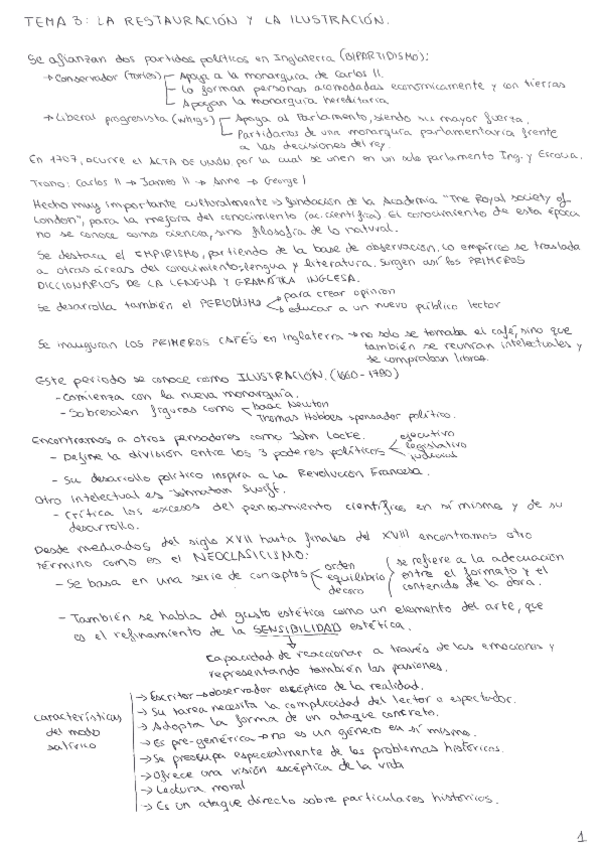 TEMA 3: LA RESTAURACIÓN Y LA ILUSTRACIÓN.
Se afianzan dos partidos políticos en Inglaterra (BIPARTIDISMO):
→ Conservador (Tories) Apoya a la monarquía de Carlos II.
Lo forman personas acomodadas económicamente y con tierras
Apoyan la monarquía hereditaria
→ Liberal progresista (whigs) Apoya al Parlamento, siendo su mayor fuerza.
Partidarios de una monarquía parlamentaria frente
a las decisiones del rey.
En 1707, ocurre el ACTA DE UNIÓN, por la cual se unen en un solo parlamento Ing. y Escocia.
Trono: Carlos II → James II → Anne → George I
Hecho muy importante culturalmente → fundación de la Academia "The Royal society of
London", para la mejora del conocimiento (ac. científica) El conocimiento de esta época
no se conoce como ciencia, sino filosofía de lo natural.
Se destaca el EMPIRISMO, partiendo de la base de observación. Lo empírico se traslada
a otras áreas del conocimiento; lengua y literatura. Surgen así los PRIMEROS
DICCIONARIOS DE LA LENGUA Y GRAMÁTICA INGLESA.
Se desarrolla también el PERIODISMO para crear opinión
educar a un nuevo público lector
Se inauguran LOS PRIMEROS CAFÉS en Inglaterra → no solo se tomaba el café, sino que
también se reunían intelectuales y
se compraban libros.
Este periodo se conoce como ILUSTRACIÓN. (1660-1790)
- Comienza con la nueva monarquía.
- Sobresalen figuras como Isaac Newton
Thomas Hobbes → pensador político.
Encontramos a otros pensadores como John Locke.
- Define la división entre los 3 poderes políticos ejecutivo
legislativo
judicial
- Su desarrollo político inspira a la Revolución Francesa.
Otro intelectual es Johnatan Swift.
- Critica los excesos del pensamiento científico en sí mismo y de su
desarrollo.
Desde mediados del siglo XVII hasta finales del XVIII encontramos otro
término como es el NEOCLASICISMO:
- Se basa en una serie de conceptos orden
equilibrio
decoro
se refiere a la adecuación
entre el formato y el
contenido de la obra.
- También se habla del gusto estético como un elemento del arte, que
es el refinamiento de la SENSIBILIDAD estética.
Capacidad de reaccionar a través de las emociones y
representando también las pasiones.
características
del modo
satírico
→ Escritor → observador escéptico de la realidad.
→ Su tarea necesita la complicidad del lector o espectador.
→ Adopta la forma de un ataque concreto.
→ Es pre-genérica → no es un género en sí mismo.
→ Se preocupa especialmente de los problemas históricos.
→ Ofrece una visión escéptica de la vida
→ Lectura moral
→ Es un ataque directo sobre particulares históricos.
1